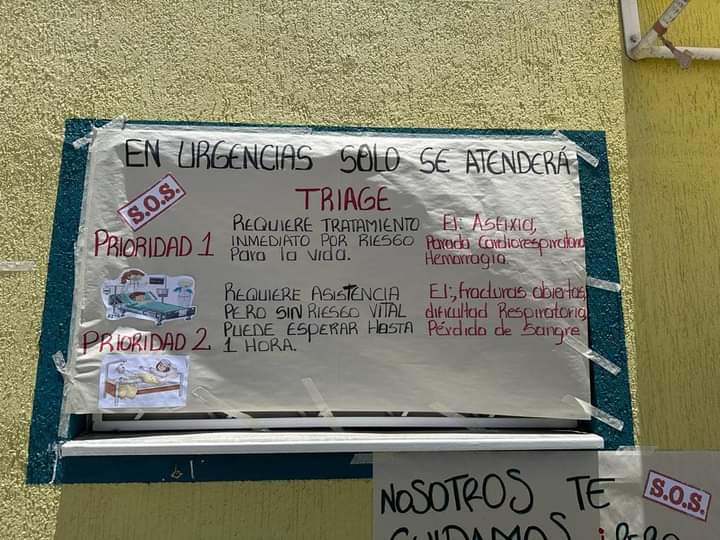 EN URGENCIAS SOLO SE ATENDERÁ
TRIAGE
S.O.S.
PRIORIDAD 1
REQUIERE TRATAMIENTO
INMEDIATO POR RIESGO
Para la vida.
EJ: Asfixia,
Parada Cardiorespiratoria
Hemorragia.
PRIORIDAD 2
REQUIERE ASISTENCIA
PERO SIN RIESGO VITAL
PUEDE ESPERAR HASTA
1 HORA.
EJ:, fracturas abiertas,
dificultad Respiratoria,
Pérdida de Sangre
NOSOTROS TE
S.O.S.
CUIDAMOS ¡PERO